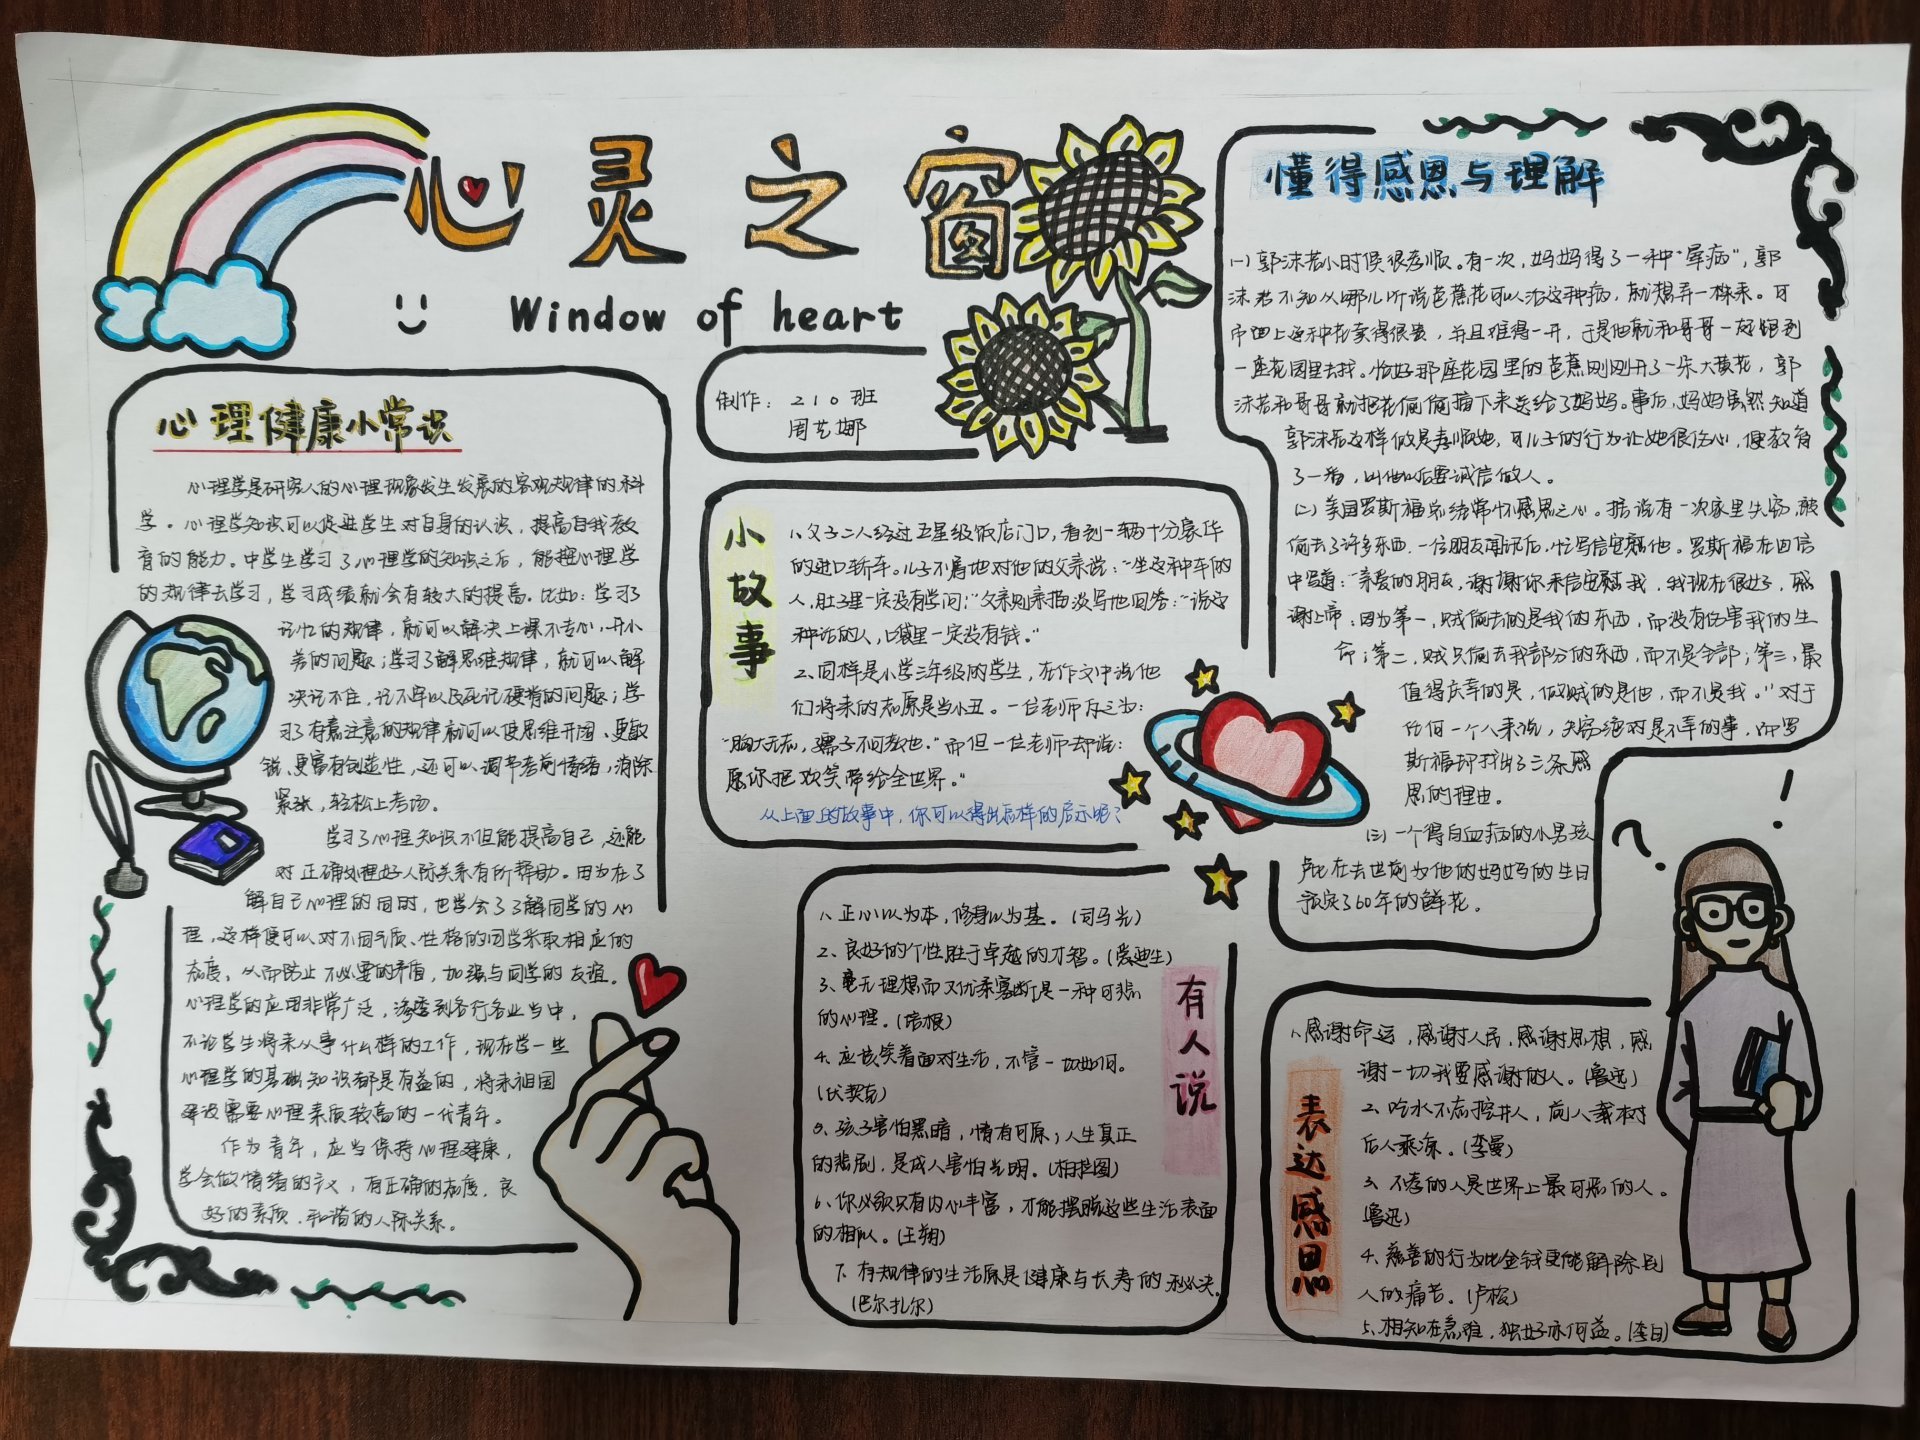 心灵之窗
Window of heart
制作：210班
周艺娜
心理健康小常识
心理学是研究人的心理现象发生发展的客观规律的科
学。心理学知识可以促进学生对自身的认识，提高自我教
育的能力。中学生学习了心理学的知识之后，能按心理学
的规律去学习，学习成绩就会有较大的提高。比如：学习了
记忆的规律，就可以解决上课不专心，开小
差的问题；学习了解思维规律，就可以解
决记不住，记不牢以及死记硬背的问题；学
习了有意注意的规律就可以使思维开阔、更敏
锐、更富有创造性，还可以调节考前情绪，消除
紧张，轻松上考场。
学习了心理知识不但能提高自己，还能
对正确处理好人际关系有所帮助。因为在了
解自己心理的同时，也学会了了解同学的心
理，这样便可以对不同气质、性格的同学采取相应的
态度，从而防止不必要的矛盾，加强与同学的友谊。
心理学的应用非常广泛，渗透到各行各业当中，
不论学生将来从事什么样的工作，现在学一些
心理学的基础知识都是有益的，将来祖国
建设需要心理素质较高的一代青年。
作为青年，应当保持心理健康，
学会做情绪的主人，有正确的态度，良
好的素质，和谐的人际关系。
小故事
1、父子二人经过五星级饭店门口，看到一辆十分豪华
的进口轿车。儿子不屑地对他的父亲说："坐这种车的
人，肚子里一定没有学问；"父亲则轻描淡写地回答："说这
种话的人，口袋里一定没有钱。"
2、同样是小学三年级的学生，在作文中说他
们将来的志愿是当小丑。一位老师斥之为：
"胸大无志，孺子不可教也。"而但一位老师却说：
愿你把欢笑带给全世界。"
从上面的故事中，你可以得出怎样的启示呢？
有人说
1、正心以为本，修身以为基。（司马光）
2、良好的个性胜于卓越的才智。（爱迪生）
3、毫无理想而又优柔寡断是一种可悲
的心理。（培根）
4、应该笑着面对生活，不管一切如何。
（伏契克）
5、孩子害怕黑暗，情有可原；人生真正
的悲剧，是成人害怕光明。（柏拉图）
6、你必欲只有内心丰富，才能摆脱这些生活表面
的相似。（王朔）
7、有规律的生活原是健康与长寿的秘诀。
（巴尔扎尔）
懂得感恩与理解
（一）郭沫若小时候很孝顺。有一次，妈妈得了一种"晕病"，郭
沫若不知从哪儿听说芭蕉花可以治这种病，就想弄一株来。可
市面上这种花卖得很贵，并且难得一开，于是他就和哥哥一起跑到
一座花园里去找。恰好那座花园里的芭蕉刚刚开了一朵大黄花，郭
沫若和哥哥就把花偷偷摘下来送给了妈妈。事后，妈妈虽然知道
郭沫若这样做是孝顺她，可儿子的行为让她很伤心，便教育
了一番，叫他以后要诚信做人。
（二）美国罗斯福总统常怀感恩之心。据说有一次家里失窃，被
偷去了许多东西，一位朋友闻讯后，忙写信安慰他。罗斯福在回信
中写道："亲爱的朋友，谢谢你来信安慰我，我现在很好，感
谢上帝：因为第一，贼偷去的是我的东西，而没有伤害我的生
命；第二，贼只偷去我部分的东西，而不是全部；第三，最
值得庆幸的是，做贼的是他，而不是我。"对于
任何一个人来说，失窃绝对是不幸的事，而罗
斯福却找出了三条感
恩的理由。
（三）一个得白血病的小男孩
in在去世前为他的妈妈的生日
预定了60年的鲜花。
表达感恩
1、感谢命运，感谢人民，感谢思想，感
谢一切我要感谢的人。（鲁迅）
2、吃水不忘挖井人，前人栽树
后人乘凉。（李曼）
3、不孝的人是世界上最可恶的人。
（鲁迅）
4、慈善的行为比金钱更能解除别
人的痛苦。（卢梭）
5、相知在急难，独好亦何益。（李白）